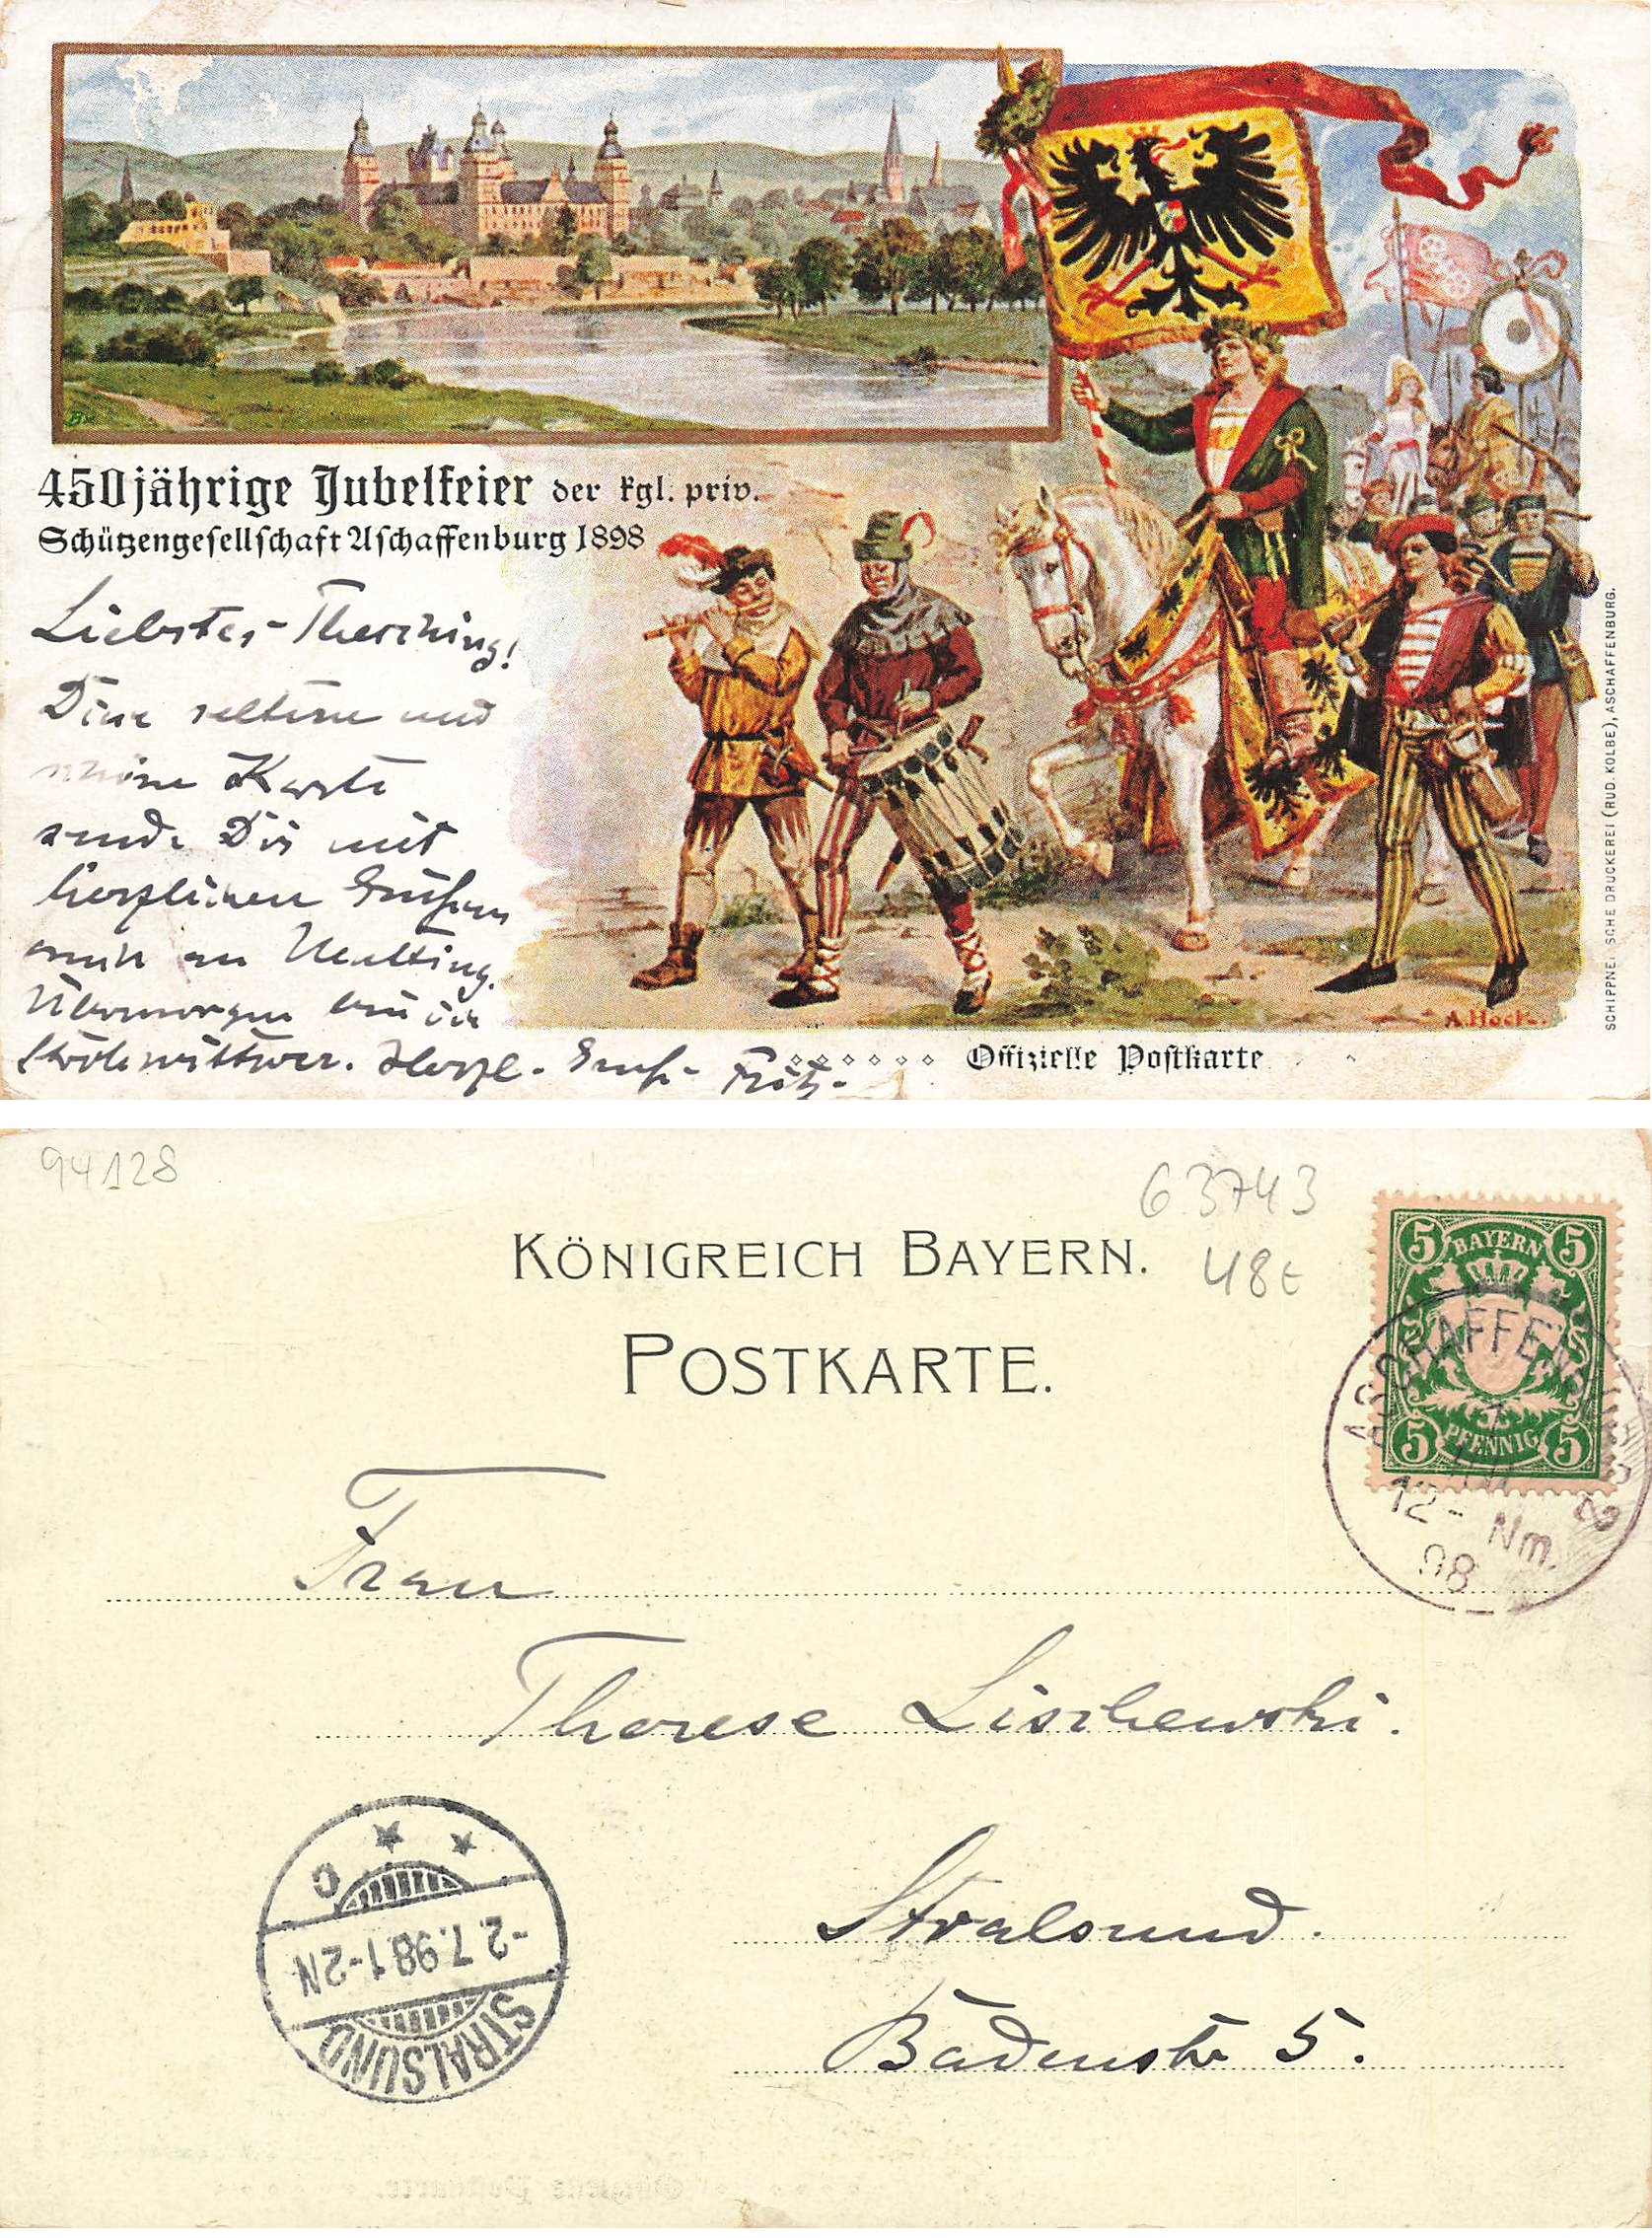 450jährige Jubelfeier der kgl. priv.
Schützengesellschaft Aschaffenburg 1898
Liebstes Theresching!
Diese seltene und
schöne Karte
sende Dir mit
herzlichen Grüßen
auch an
Übermorgen bin ich
Strohwittwer. Herzl. Gruß Fritz.
Offizielle Postkarte
A. Hock.
SCHIPPNER'SCHE DRUCKEREI (RUD. KOLBE), ASCHAFFENBURG.
94128
63743
48t
KÖNIGREICH BAYERN.
POSTKARTE.
5 BAYERN 5
5 PFENNIG 5
ASCHAFFENBURG 2
12- Nm.
98
Frau
Therese Lischewski.
Stralsund.
Badenstr 5.
STRALSUND
-2.7.98.1-2N
C